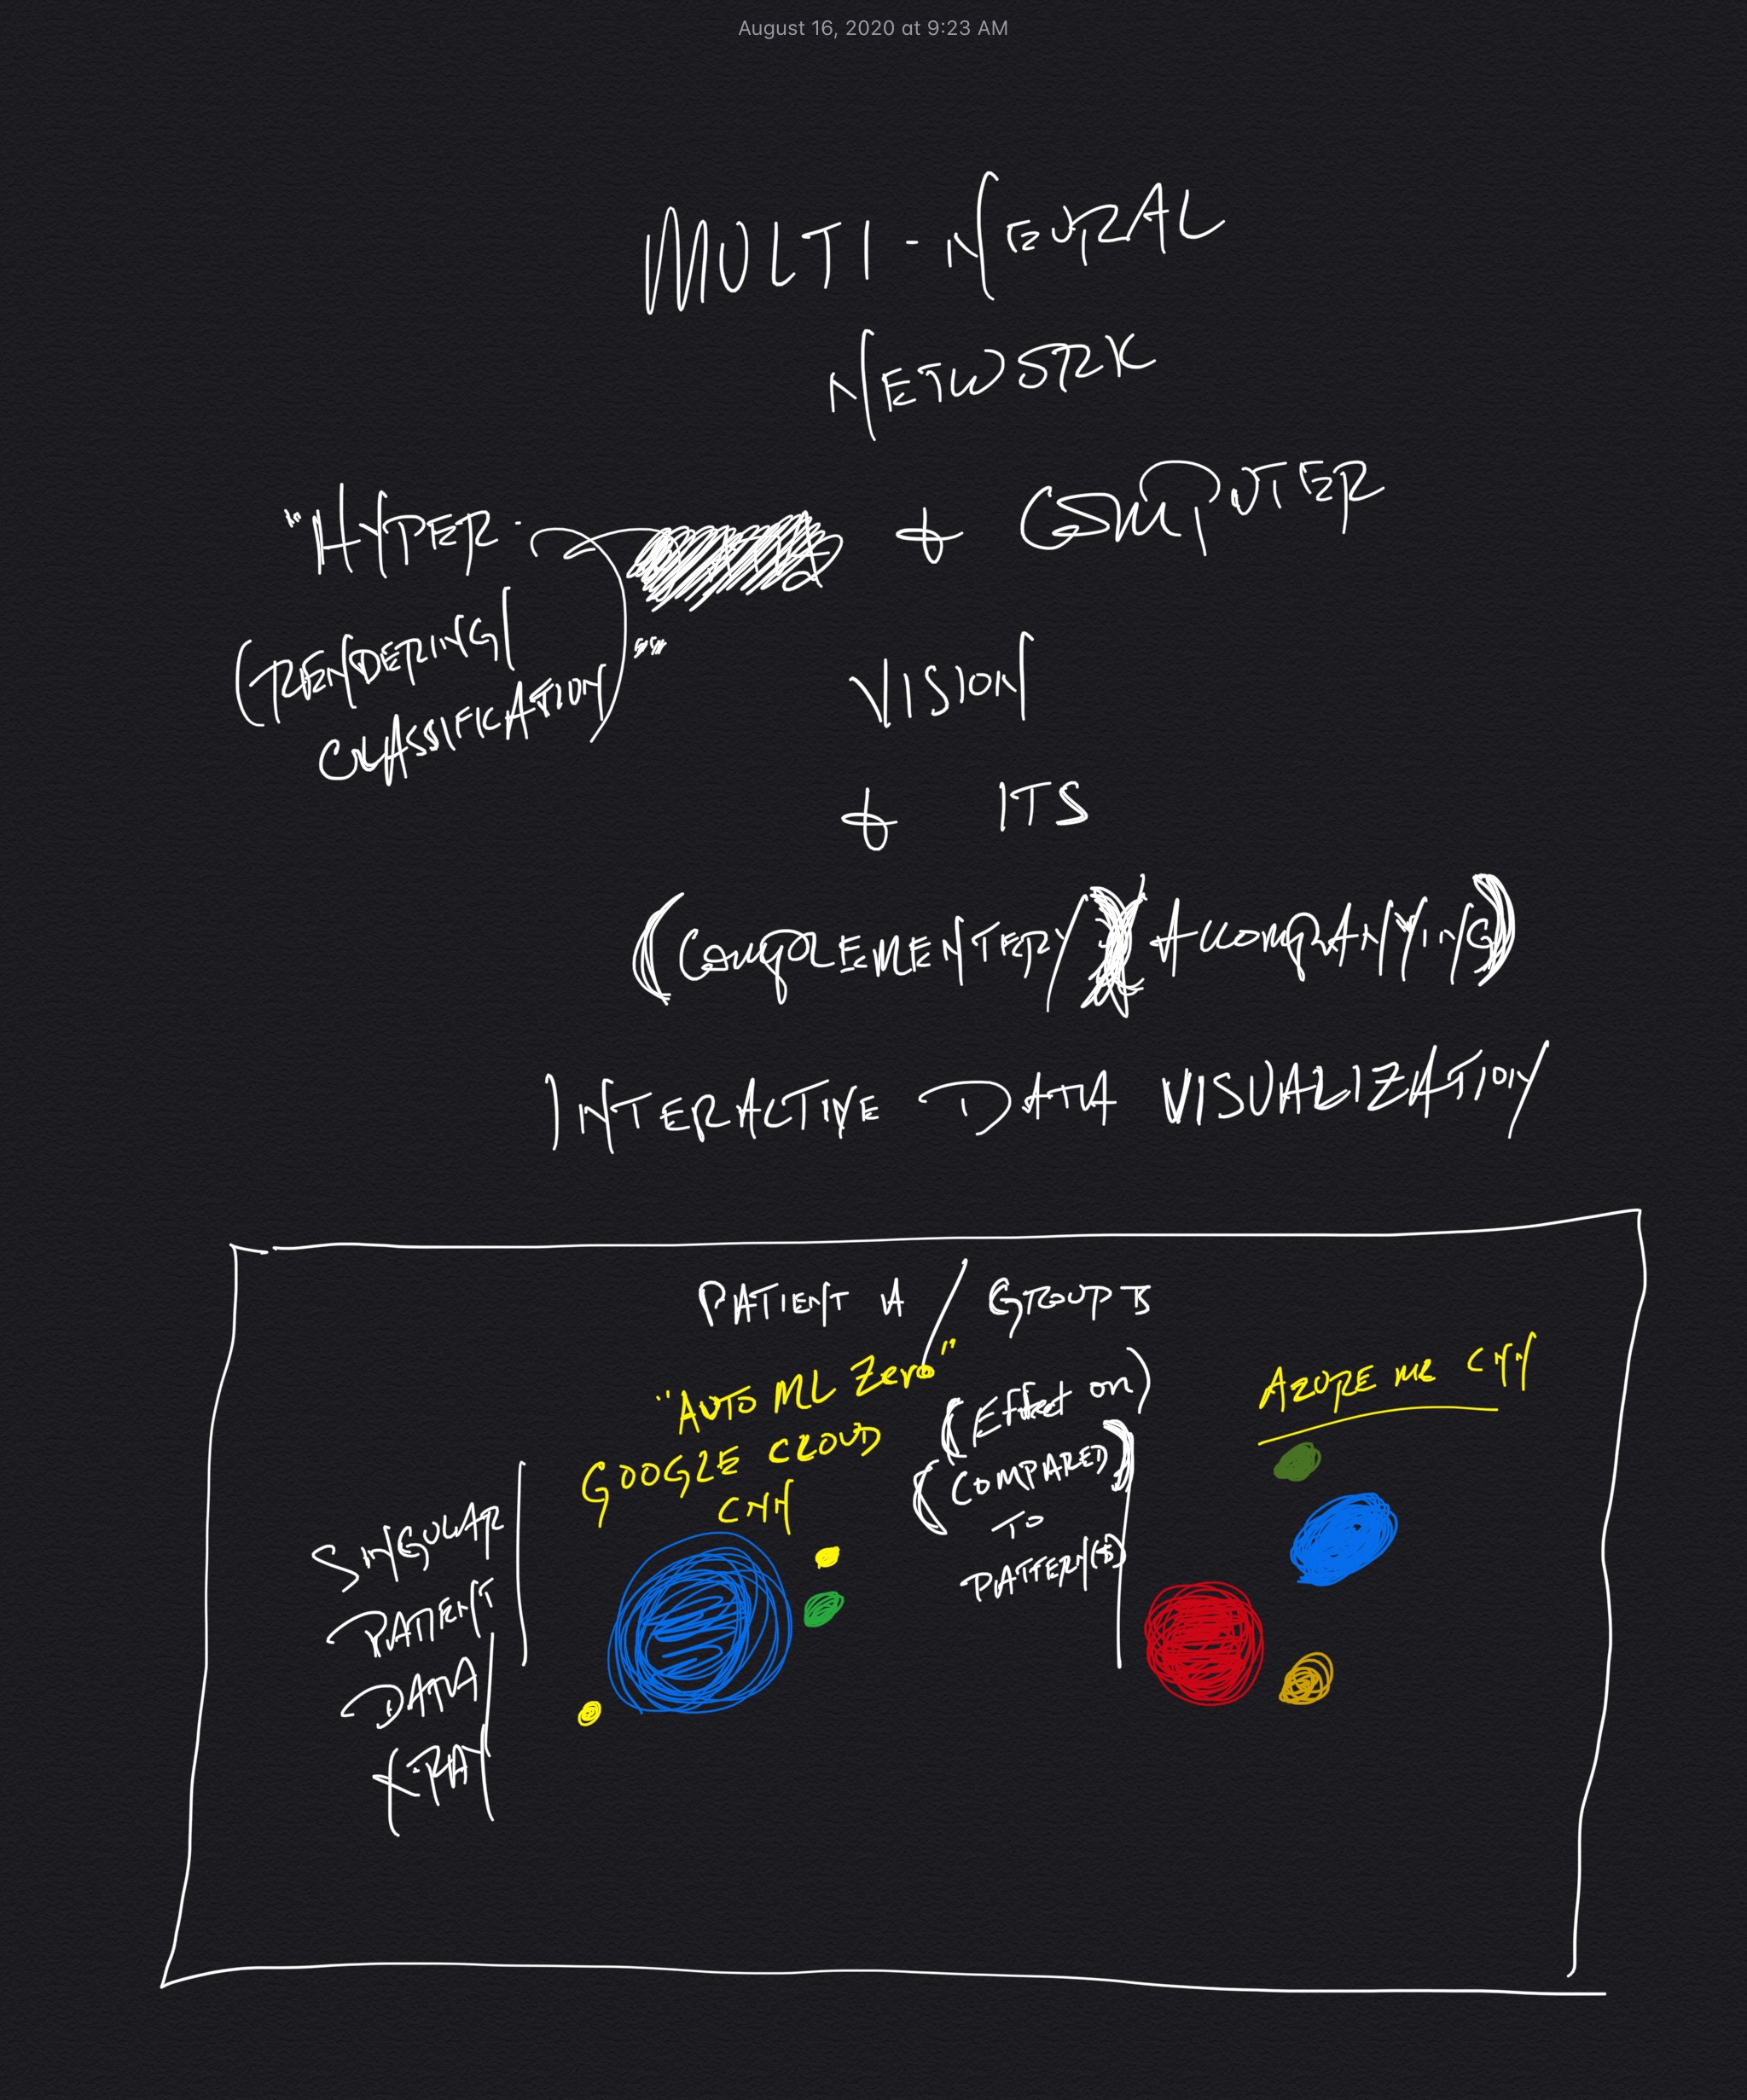 August 16, 2020 at 9:23 AM
MULTI-NEURAL
NETWORK
"HYPER-
(RENDERING/
CLASSIFICATION)"
& COMPUTER
VISION
& ITS
(COMPLEMENTERY/ACCOMPANYING)
INTERACTIVE DATA VISUALIZATION
PATIENT A / GROUP B
"AUTO ML Zero"
GOOGLE CLOUD
CNN
(Effect on)
(COMPARED)
TO
PATTERN(S)
AZURE ML CNN
SINGULAR
PATIENT
DATA
X-RAY